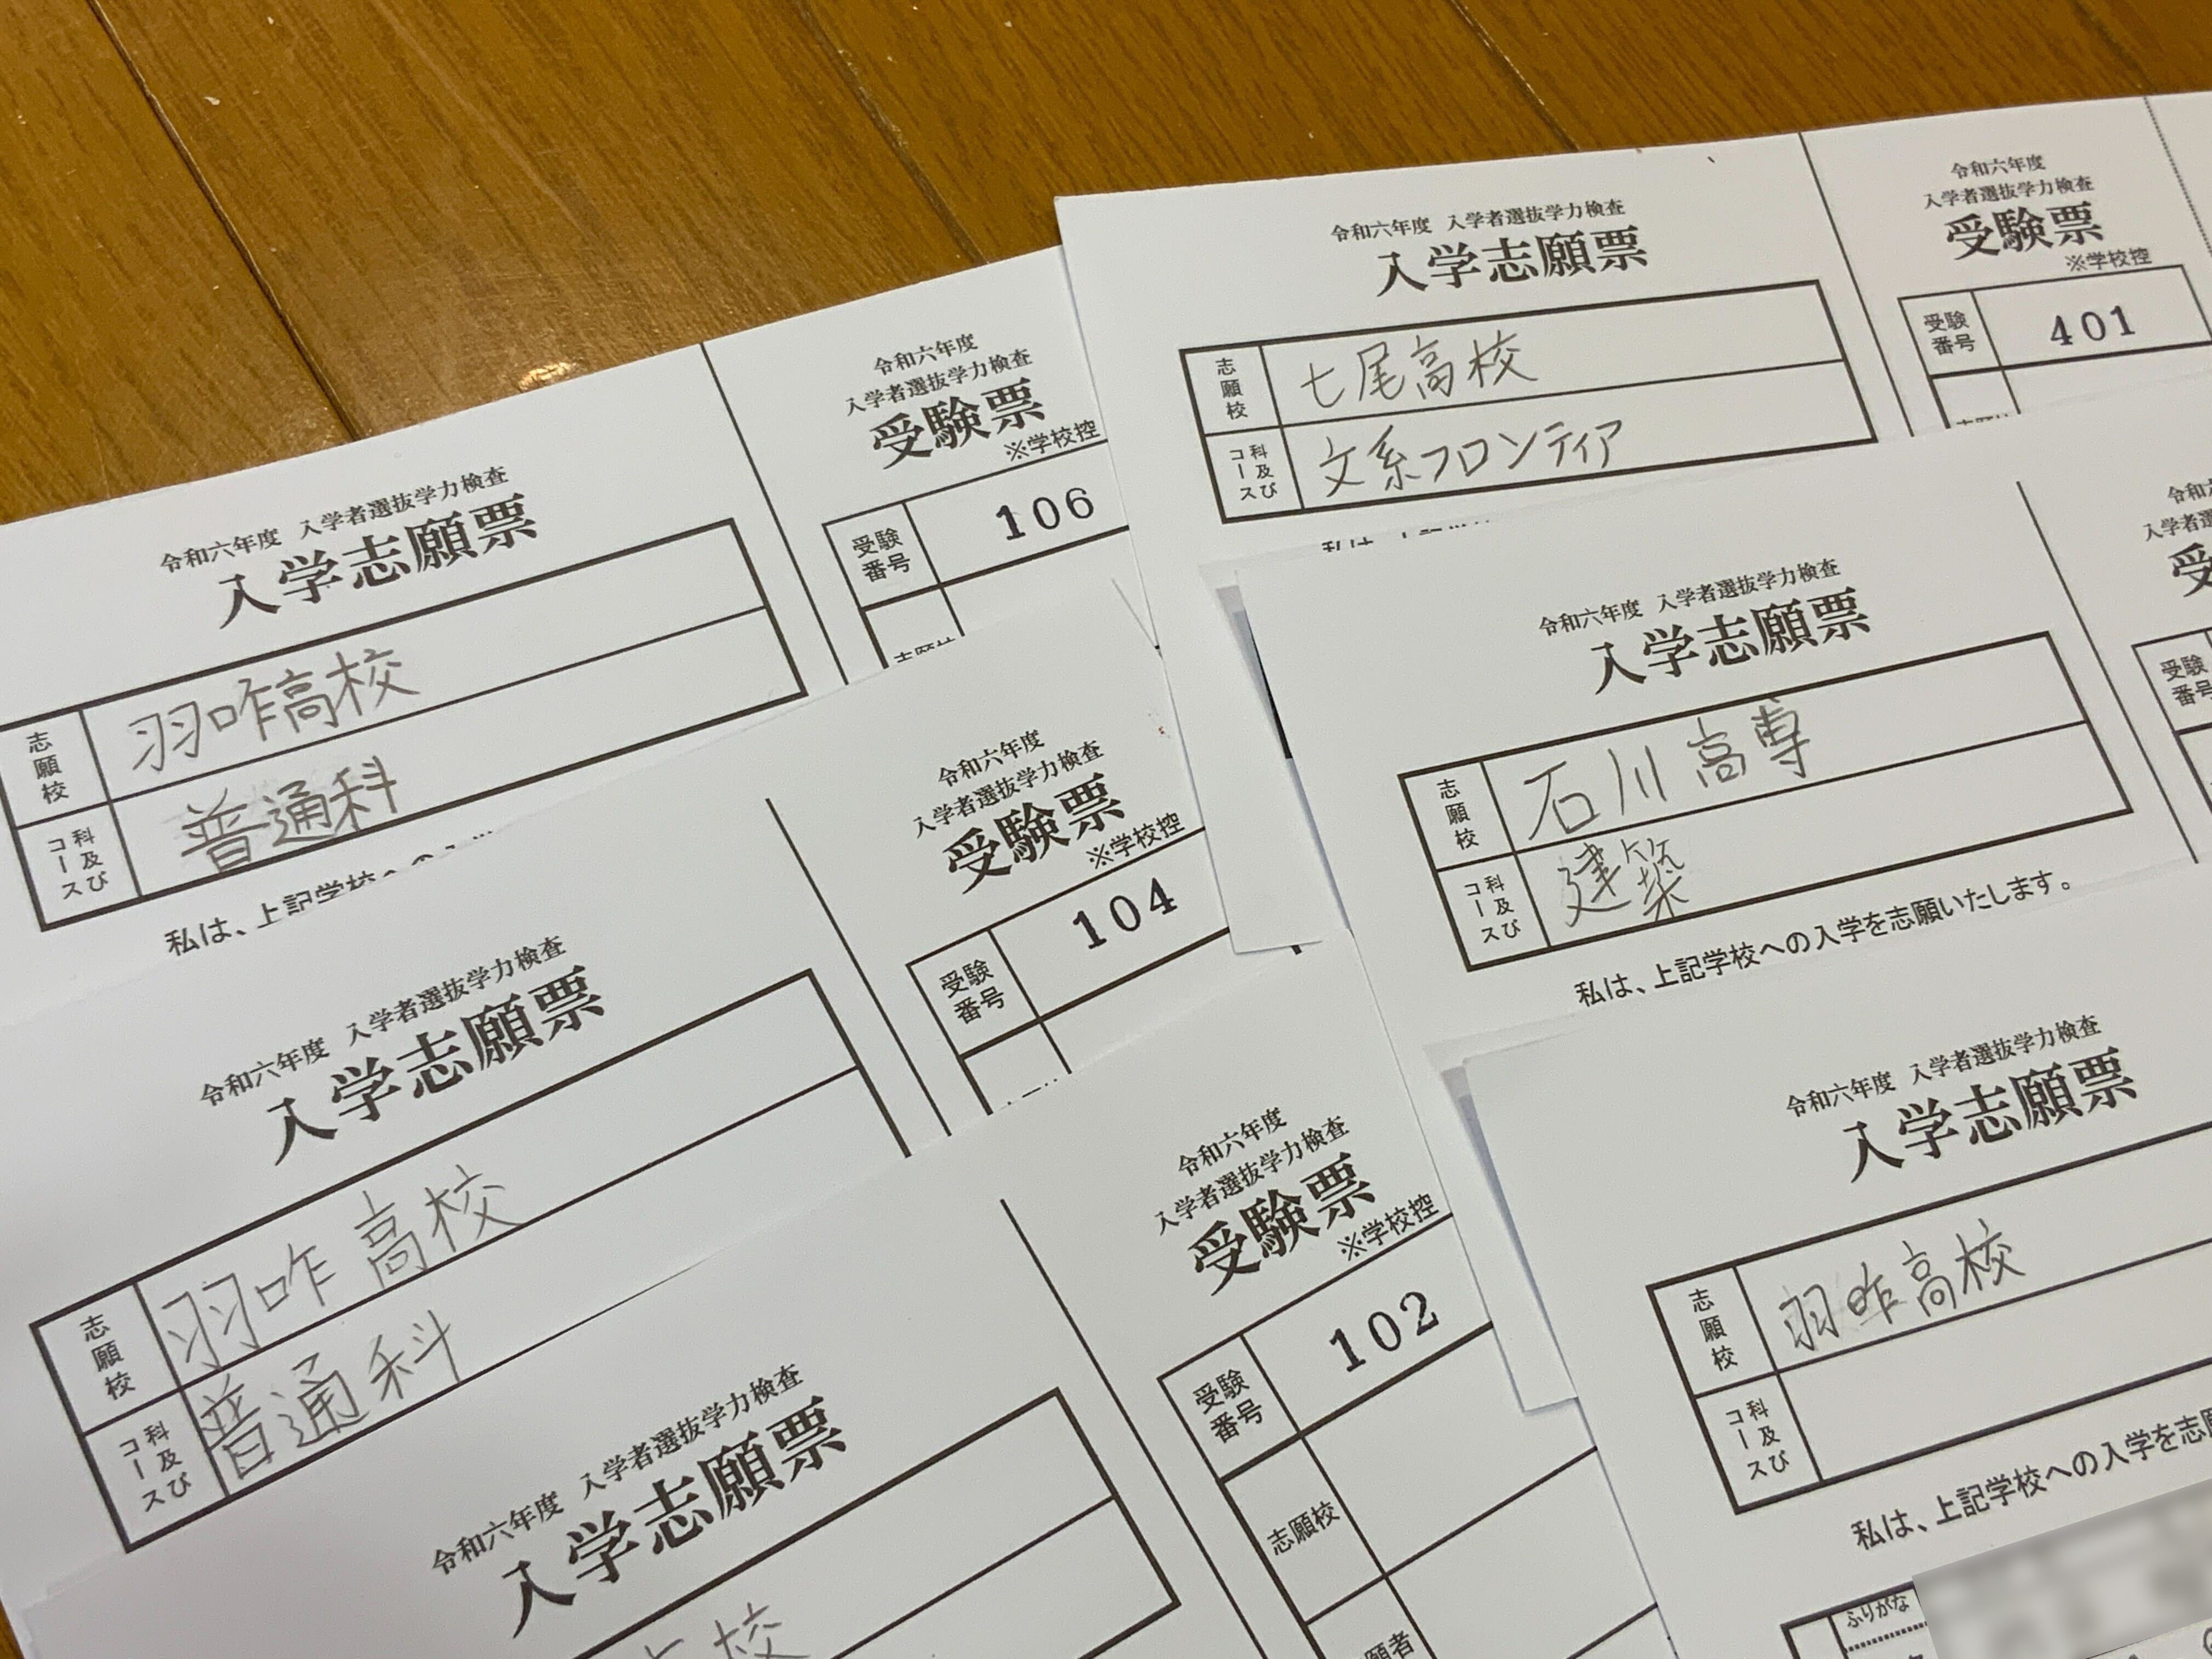 令和六年度 入学者選抜学力検査
入学志願票
志願校
羽咋高校
科及びコース
普通科
私は、上記学校への入
令和六年度
入学者選抜学力検査
受験票
※学校控
受験番号
106
志願校
令和六年度 入学者選抜学力検査
入学志願票
志願校
羽咋高校
科及びコース
普通科
令和六年度
入学者選抜学力検査
受験票
※学校控
受験番号
104
令和六年度 入学者選抜学力検査
入学志願票
校
令和六年度
入学者選抜学力検査
受験票
※学校控
受験番号
102
志願校
願者
令和六年度 入学者選抜学力検査
入学志願票
志願校
七尾高校
科及びコース
文系フロンティア
私は、上記学校
令和六年度
入学者選抜学力検査
受験票
※学校控
受験番号
401
令和六年度 入学者選抜学力検査
入学志願票
志願校
石川高専
科及びコース
建築
私は、上記学校への入学を志願いたします。
令和
入学者選
受
受験番号
令和六年度 入学者選抜学力検査
入学志願票
志願校
羽咋高校
科及びコース
私は、上記学校への入学を志願
ふりがな